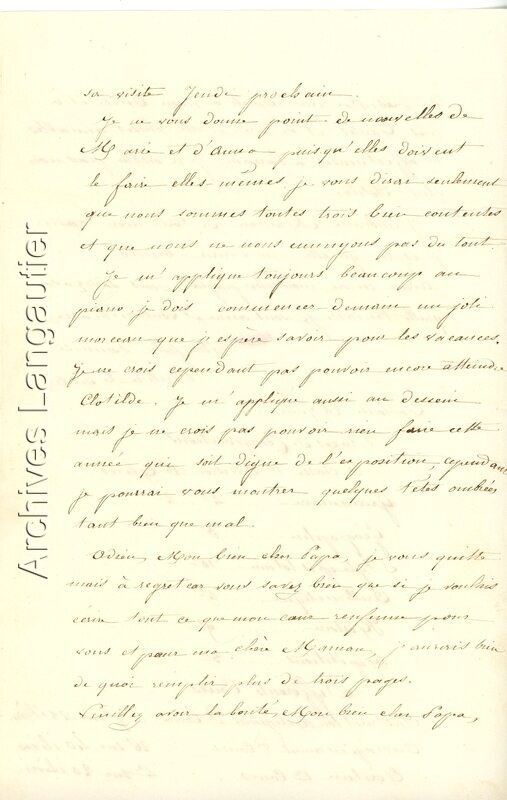 sa visite Jeudi prochain.
Je ne vous donne point de nouvelles de
Marie et d'Anna puisqu'elles doivent
le faire elles mêmes, je vous dirai seulement
que nous sommes toutes trois bien contentes
et que nous ne nous ennuyons pas du tout.
Je m'applique toujours beaucoup au
piano, je dois commencer demain un joli
morceau que j'espère savoir pour les vacances.
Je ne crois cependant pas pouvoir encore atteindre
Clotilde. Je m'applique aussi au dessin
mais je ne crois pas pouvoir rien faire cette
année qui soit digne de l'exposition, cependant
je pourrai vous montrer quelques têtes ombrées
tant bien que mal.
Adieu, Mon bien cher Papa, je vous quitte
mais à regret car vous savez bien que si je voulais
écrire tout ce que mon cœur renferme pour
vous et pour ma chère Maman, j'aurais bien
de quoi remplir plus de trois pages.
Veuillez avoir la bonté, Mon bien cher Papa,
Archives Langautier